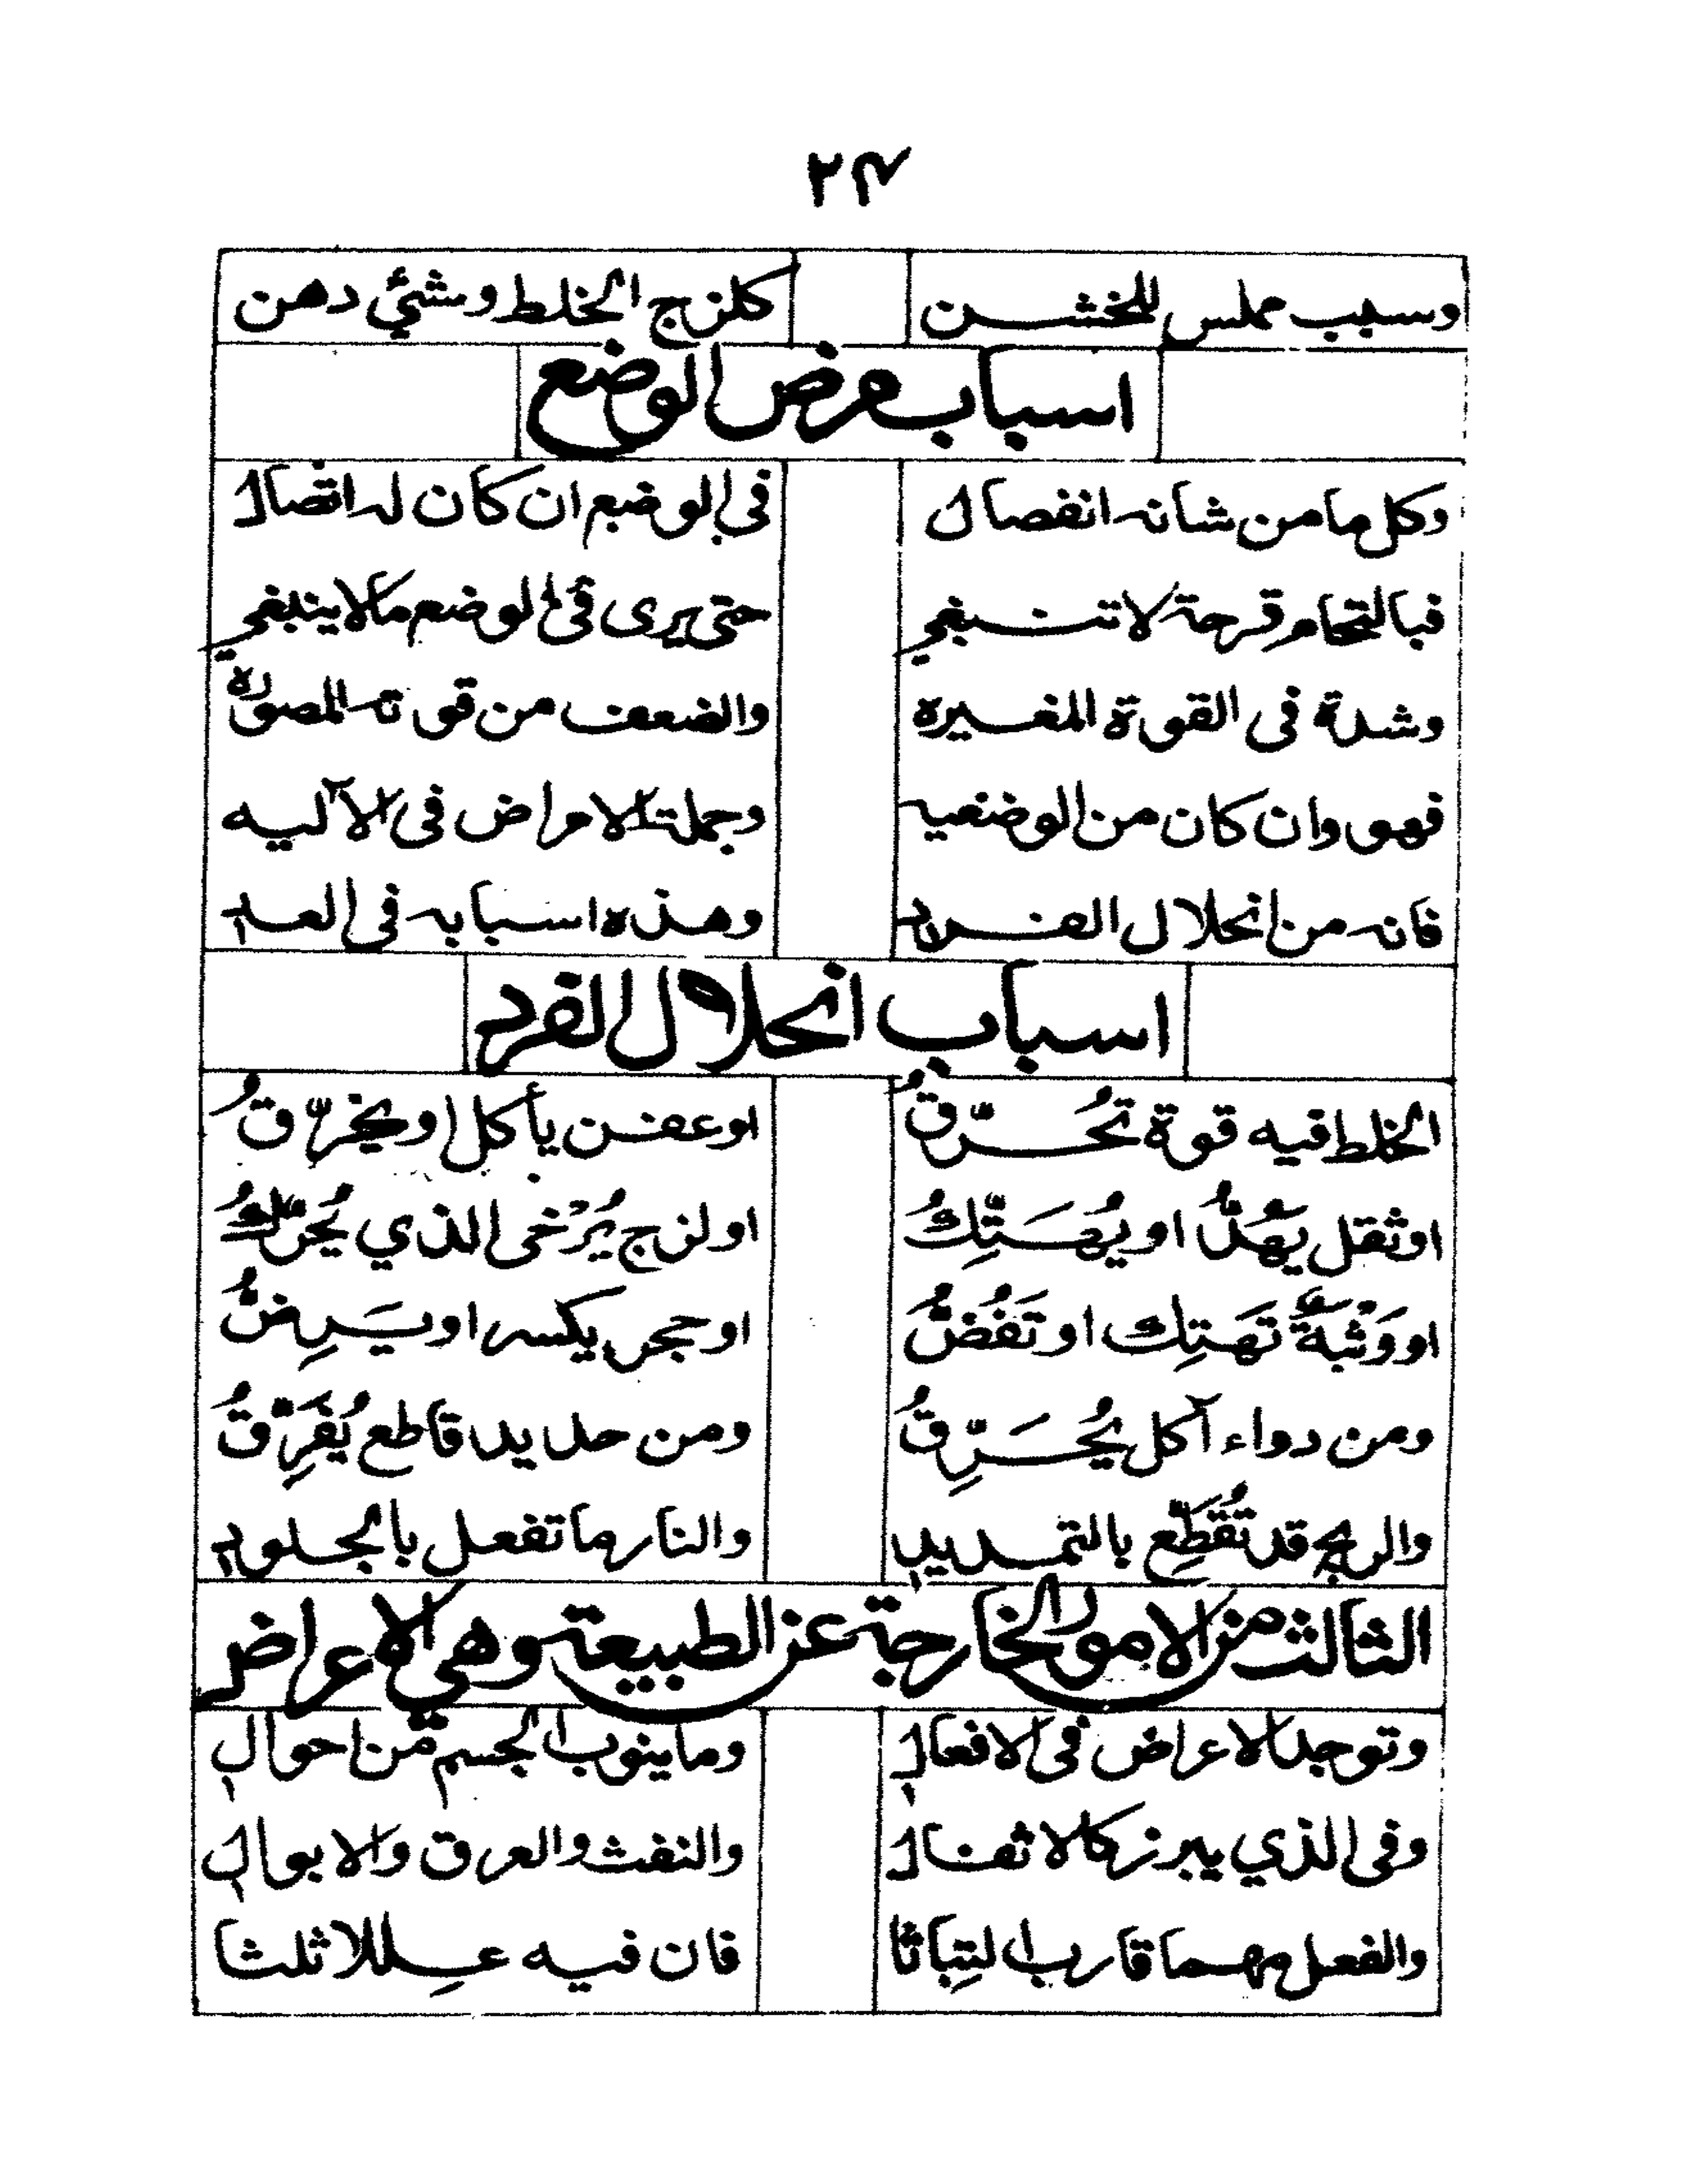 ٢٣
وسبب مملس للخشن كلزج الخلط وشئي دهن
اسباب مرض الوضع
وكل ما من شانه انفصال في الوضع ان كان له اتصال
فبالتحام قرحة لا تنبغي حتى يرى في الوضع ما لا ينبغي
وشدة في القوة المغيره والضعف من قوته المصوره
فهو وان كان من الوضعيه وجملة الامراض في الآليه
فانه من انحلال الفرد وهذه اسبابه في العد
اسباب انحلال الفرد
الخلط فيه قوة تحُرّقُ اوعفن يأكل او يخرّقُ
او ثقل يَهُدُّ او يُهَتِّكُ او لزج يُرْخى الذي يُحرّكُ
او وَثْبَةٌ تَهَتِك او تَفُضُّ او حجر يكسر او يَرِضُّ
ومن دواء آكل يُحَرِّقُ ومن حديد قاطع يُفَرِّقُ
والريح قد تُقَطِّع بالتمديد والنار ما تفعل بالجلود
الثالث من الامور الخارجة عن الطبيعة وهي الاعراض
وتوجد الاعراض في الافعال وما ينوب الجسم من احوال
وفي الذي يبرز كالاثفال والنفث والعرق والابوال
والفعل مهما قارب التِباثا فان فيه عِللا ثلثا